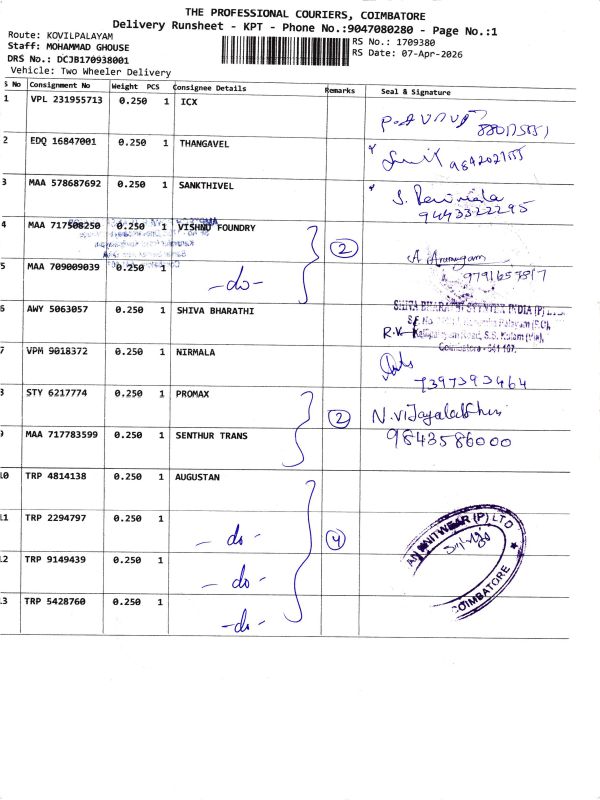 THE PROFESSIONAL COURIERS, COIMBATORE
Delivery Runsheet - KPT - Phone No.:9047080280 - Page No.:1
Route: KOVILPALAYAM
Staff: MOHAMMAD GHOUSE
RS No.: 1709380
DRS No.: DCJB170938001
RS Date: 07-Apr-2026
Vehicle: Two Wheeler Delivery
S No Consignment No Weight PCS Consignee Details Remarks Seal & Signature
1 VPL 231955713 0.250 1 ICX
2 EDQ 16847001 0.250 1 THANGAVEL
3 MAA 578687692 0.250 1 SANKTHIVEL
9443322295
4 MAA 717508250 0.250 1 VISHNU FOUNDRY 2
5 MAA 709009039 0.250 1 -do-
6 AWY 5063057 0.250 1 SHIVA BHARATHI
SHIVA BHARATHI INDIA (P)
7 VPM 9018372 0.250 1 NIRMALA
7397393464
8 STY 6217774 0.250 1 PROMAX 2 N. Vijayalakshmi
9 MAA 717783599 0.250 1 SENTHUR TRANS 9843586000
10 TRP 4814138 0.250 1 AUGUSTAN
11 TRP 2294797 0.250 1 -do- 4
KNITWEAR (P) LTD
12 TRP 9149439 0.250 1 -do-
COIMBATORE
13 TRP 5428760 0.250 1 -do-